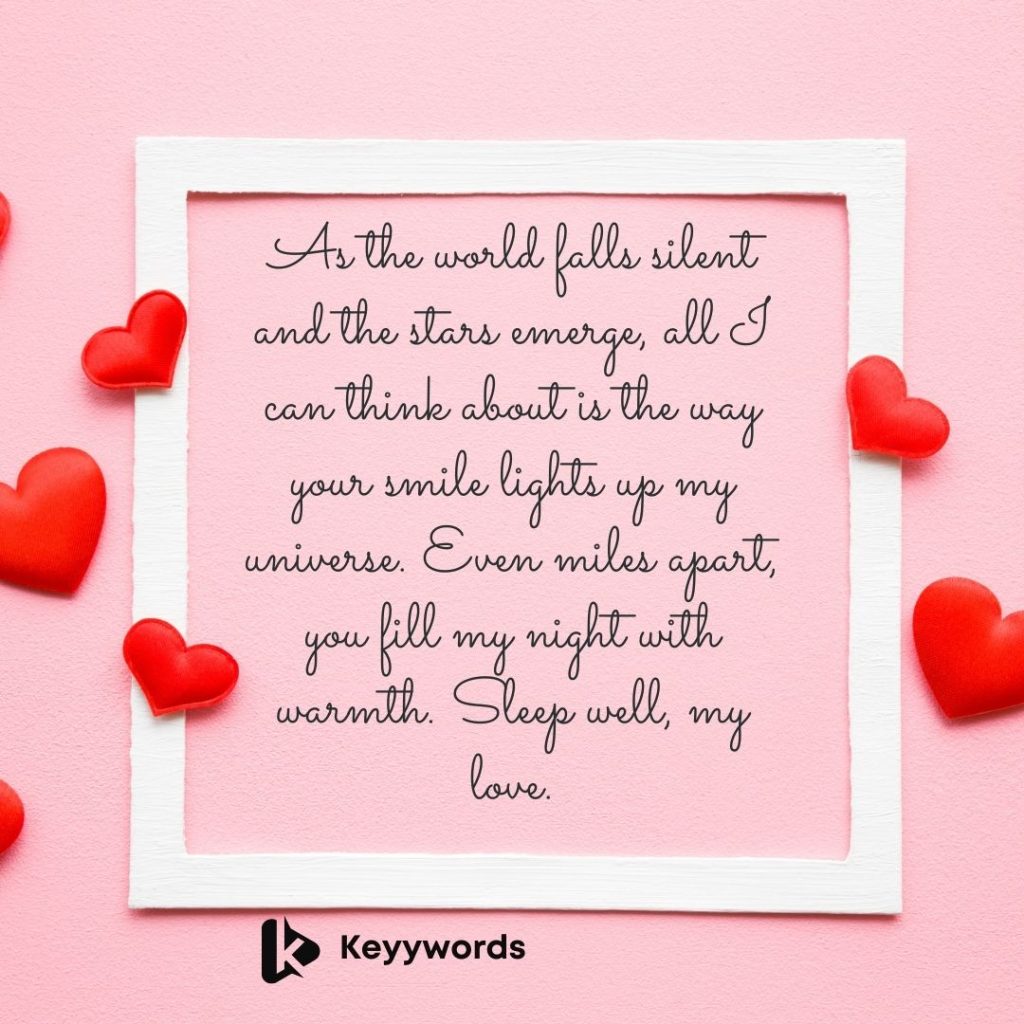 As the world falls silent
and the stars emerge, all I
can think about is the way
your smile lights up my
universe. Even miles apart,
you fill my night with
warmth. Sleep well, my
love.
Keyywords